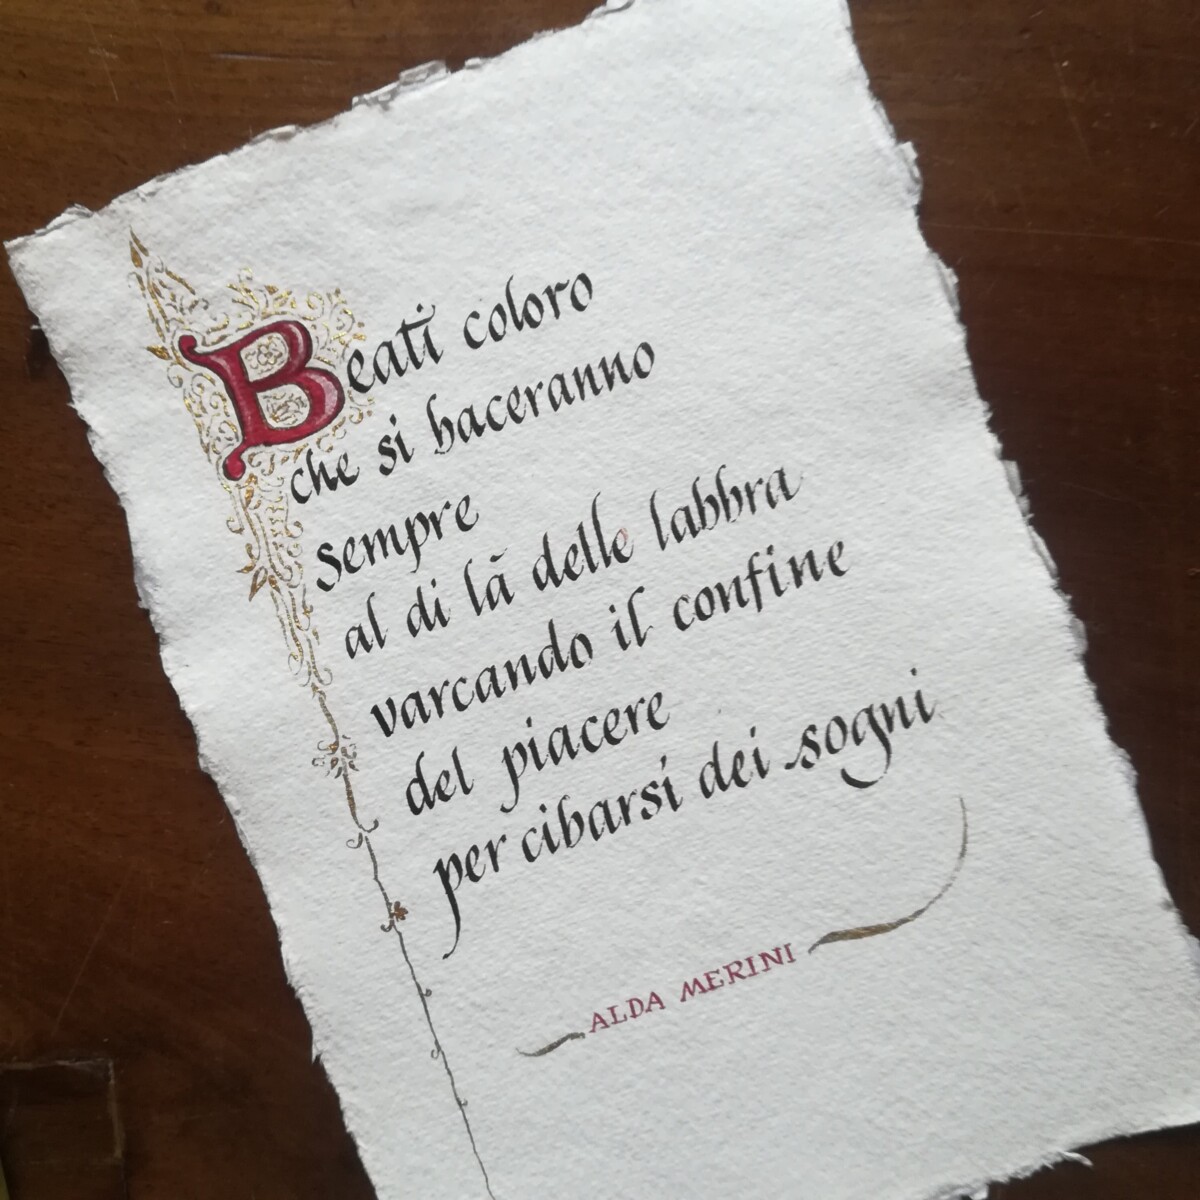 Beati coloro
che si baceranno
sempre
al di là delle labbra
varcando il confine
del piacere
per cibarsi dei sogni
ALDA MERINI